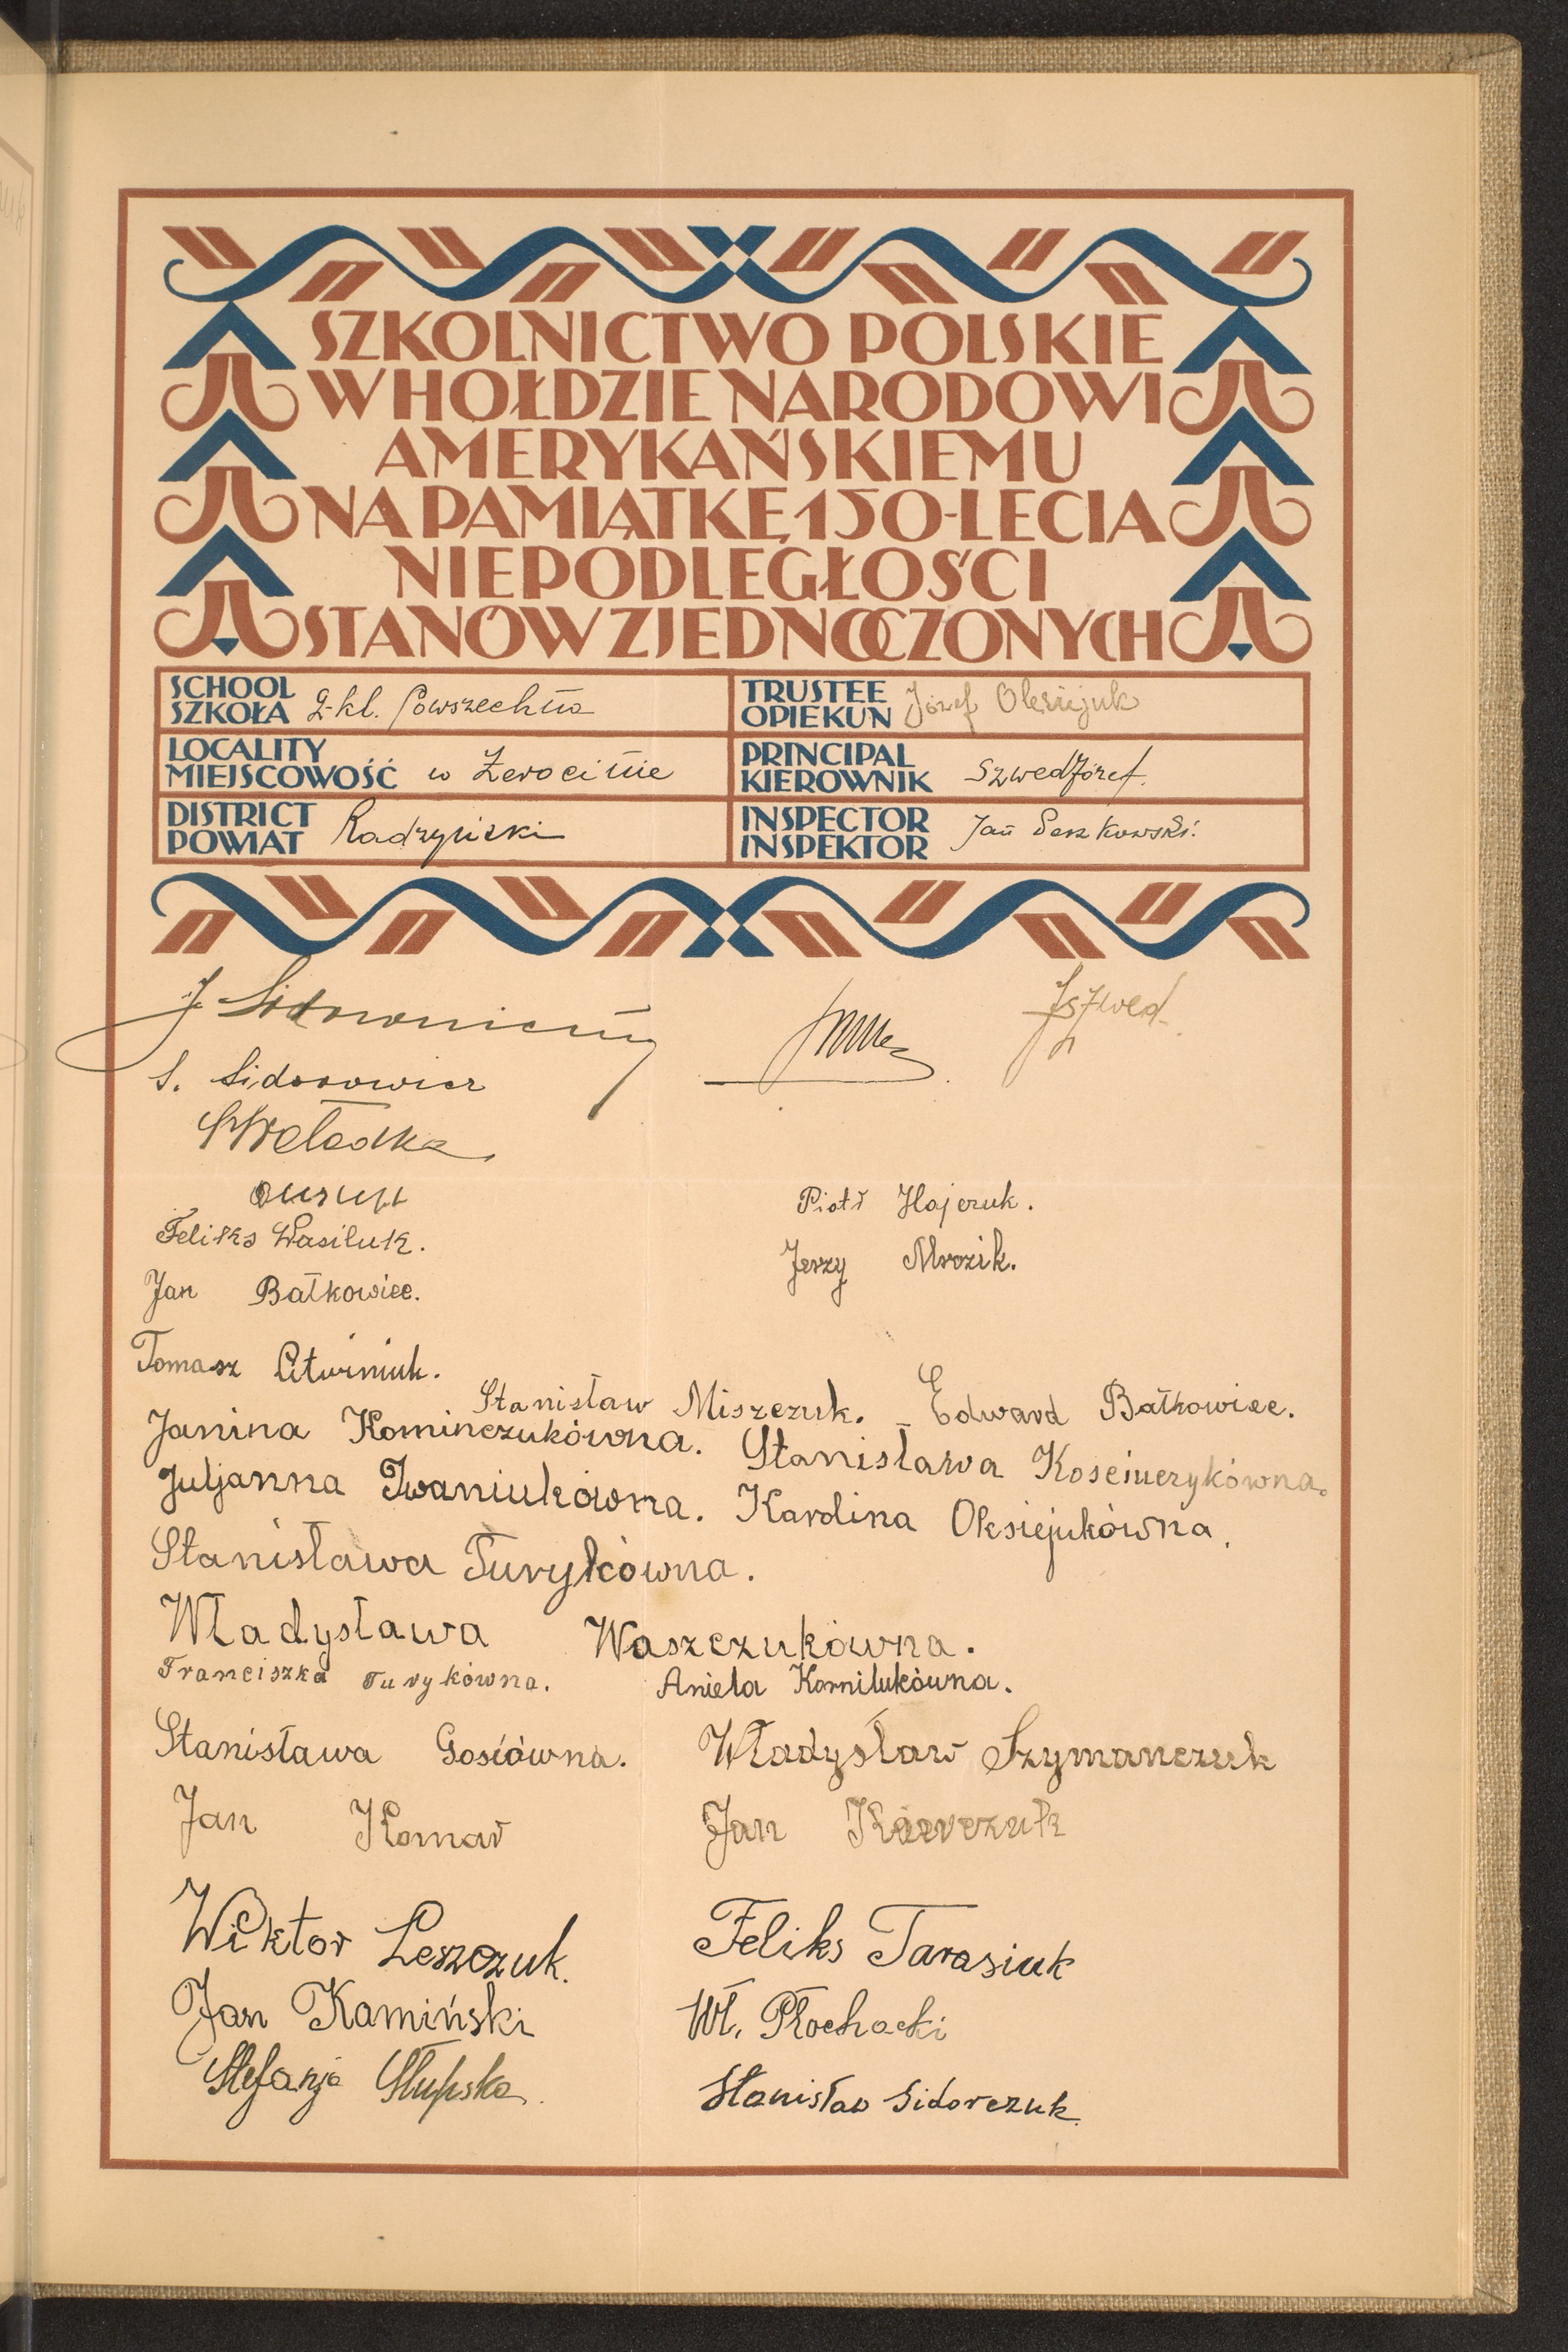 SZKOLNICTWO POLSKIE
W HOŁDZIE NARODOWI
AMERYKAŃSKIEMU
NA PAMIĄTKĘ 150-LECIA
NIEPODLEGŁOŚCI
STANÓW ZJEDNOCZONYCH
SCHOOL SZKOŁA 2-kl. Powszechna
TRUSTEE OPIEKUN Józef Oleksiejuk
LOCALITY MIEJSCOWOŚĆ w Żerocinie
PRINCIPAL KIEROWNIK Szwed Józef.
DISTRICT POWIAT Radzyński
INSPECTOR INSPEKTOR Jan
J Szwed
S. Sidorowicz
Feliks Wasiluk.
Piotr Hajczuk.
Jan Bałkowiec.
Jerzy Mrozik.
Tomasz Litwiniuk.
Stanisław Miszczuk. Edward Bałkowiec.
Janina Kominczukówna. Stanisława Kościuczykówna.
Juljanna Iwaniukówna. Karolina Oksiejukówna.
Stanisława Turykówna.
Władysława Waszczukówna.
Franciszka Turykówna. Aniela Kornilukówna.
Stanisława Gosiówna. Władysław Szymanczuk
Jan Komar Jan
Wiktor Leszczuk. Feliks Tarasiuk
Jan Kamiński Wł. Płochocki
Stefanja Słupska. Stanisław Sidorczuk.